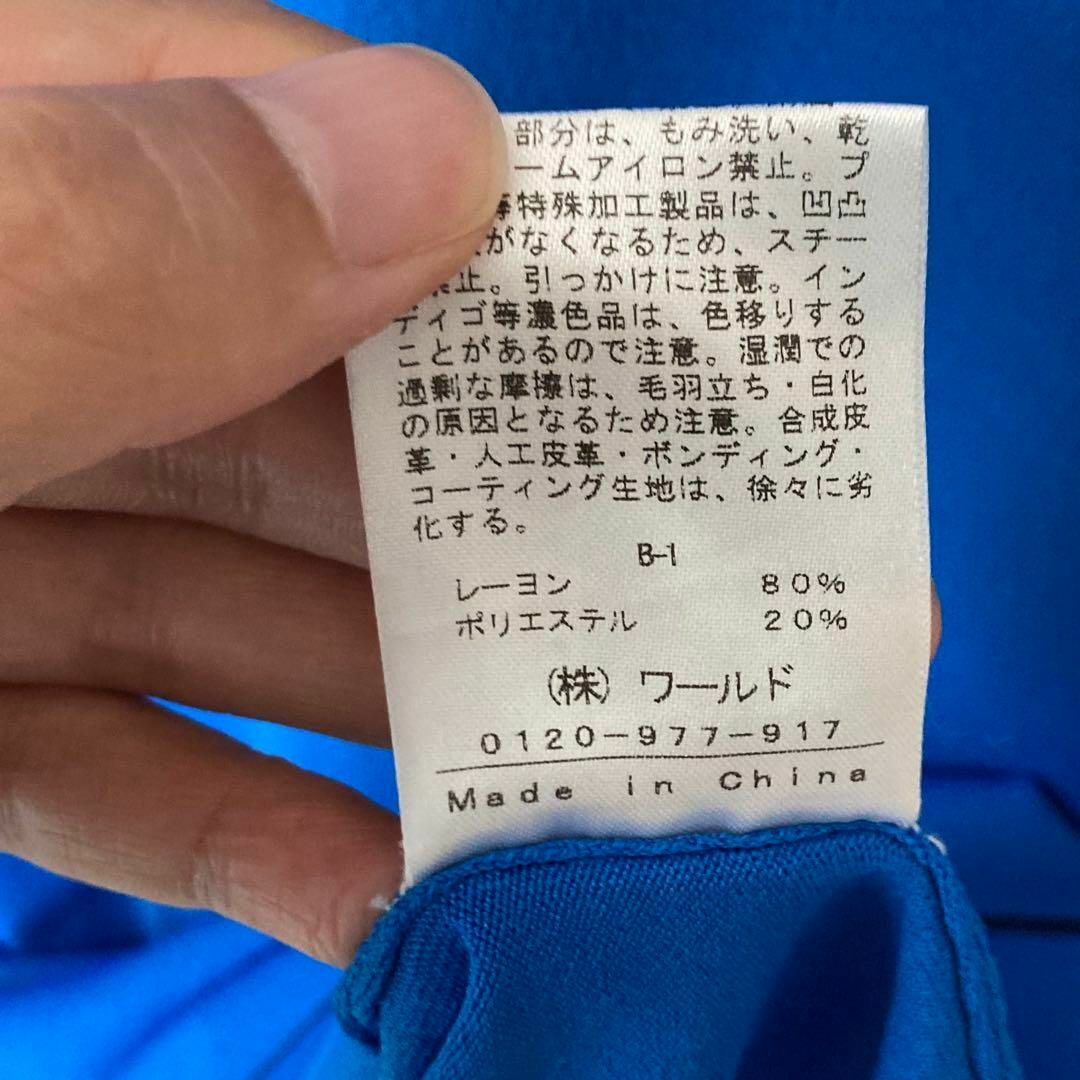 部分は、もみ洗い、乾
ームアイロン禁止。プ
等特殊加工製品は、凹凸
がなくなるため、スチー
禁止。引っかけに注意。イン
ディゴ等濃色品は、色移りする
ことがあるので注意。湿潤での
過剰な摩擦は、毛羽立ち・白化
の原因となるため注意。合成皮
革・人工皮革・ボンディング・
コーティング生地は、徐々に劣
化する。
B-1
レーヨン 80%
ポリエステル 20%
(株) ワールド
0120-977-917
Made in China